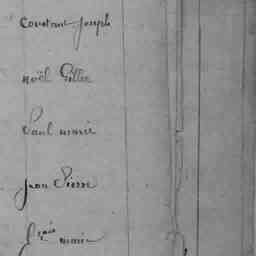 Constant Joseph
noël Gilles
Paul marie
Jean Pierre
fçois marie